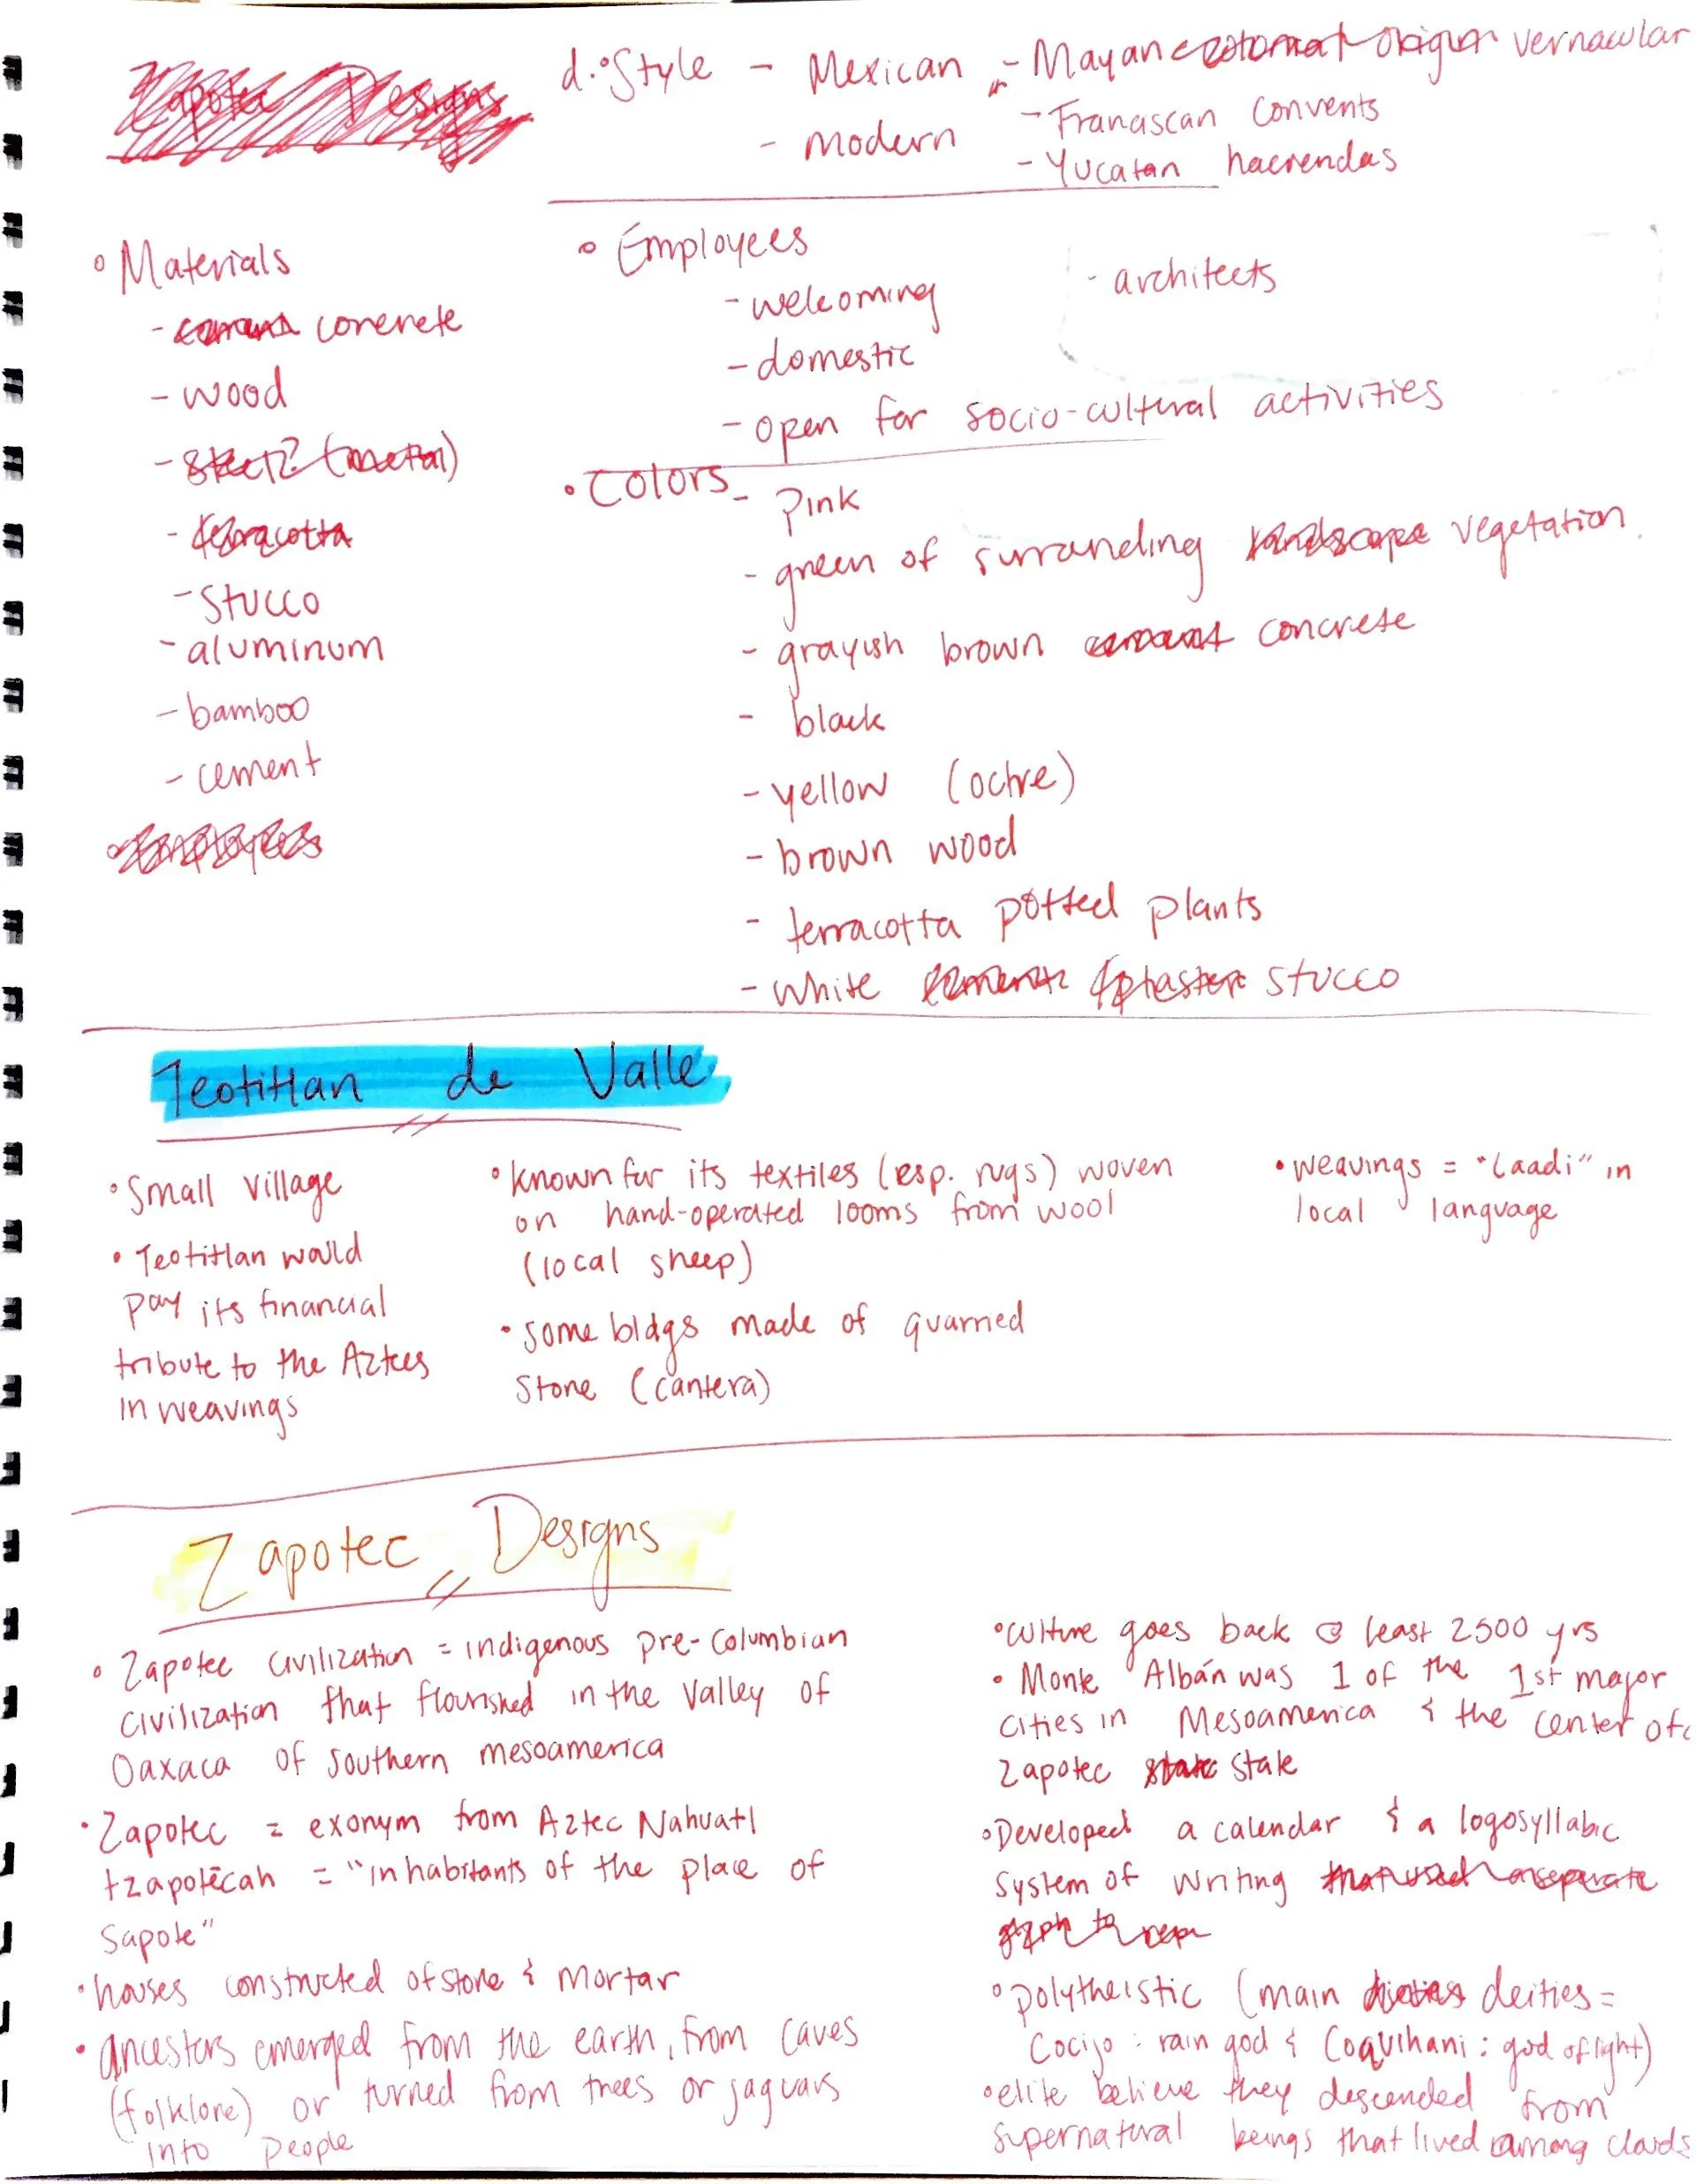 Zapotec Designs
d. Style - Mexican - Mayan vernacular
- Modern - Franciscan convents
- Yucatan haciendas
Materials
- concrete
- wood
- steel? (metal)
- terracotta
- Stucco
- aluminum
- bamboo
- cement
Employees
Employees
- welcoming
- domestic
- open for socio-cultural activities
- architects
Colors - Pink
- green of surrounding landscape vegetation
- grayish brown cement concrete
- black
- yellow (ochre)
- brown wood
- terracotta potted plants
- white cement plaster stucco
Teotitlan de Valle
Small village
Teotitlan would
pay its financial
tribute to the Aztecs
in weavings
known for its textiles (esp. rugs) woven
on hand-operated looms from wool
(local sheep)
some bldgs made of quarried
Stone (cantera)
weavings = "laadi" in
local language
Zapotec Designs
Zapotec civilization = indigenous pre-Columbian
civilization that flourished in the Valley of
Oaxaca of Southern mesoamerica
Zapotec = exonym from Aztec Nahuatl
tzapotēcah = "inhabitants of the place of
Sapote"
houses constructed of stone & mortar
ancestors emerged from the earth, from caves
(folklore) or turned from trees or jaguars
into people
culture goes back @ least 2500 yrs
Monte Albán was 1 of the 1st major
cities in Mesoamerica & the center of
Zapotec state state
Developed a calendar & a logosyllabic
System of writing that used a seperate
polytheistic (main deities =
Cocijo : rain god & Coquihani : god of light)
elite believe they descended from
supernatural beings that lived among clouds